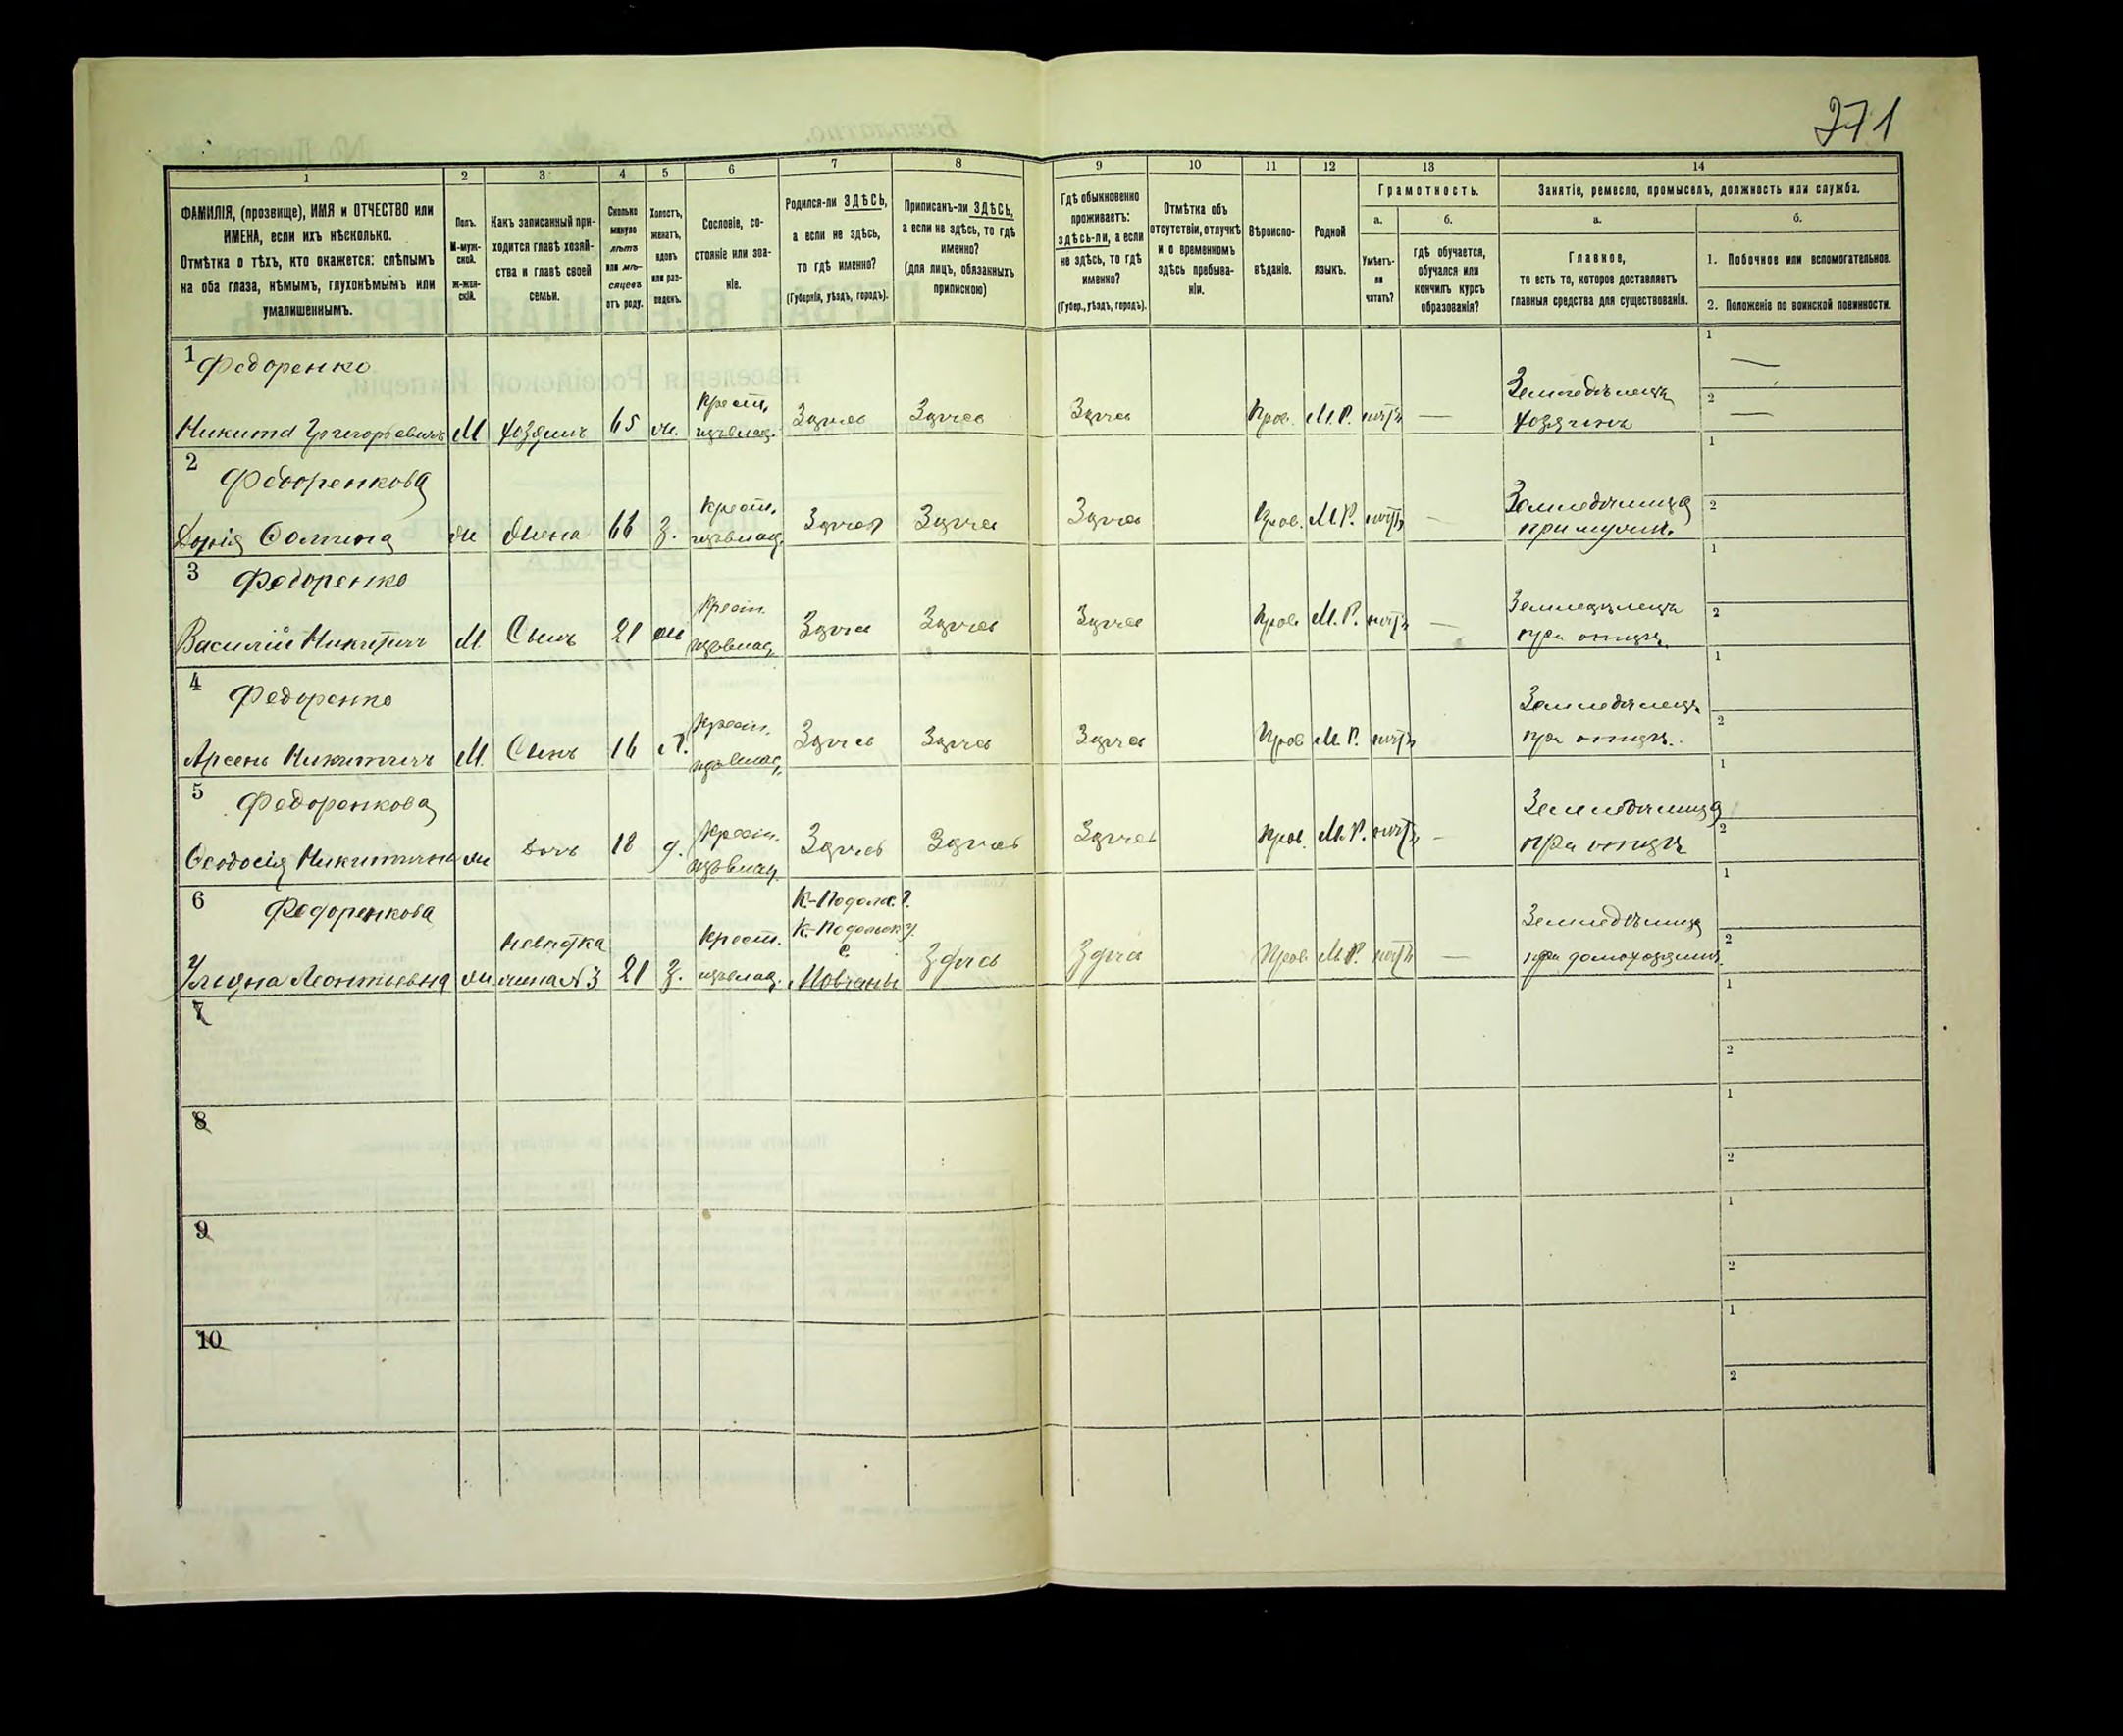 271
1 2 3 4 5 6 7 8 9 10 11 12 13 14
ФАМИЛІЯ, (прозвище), ИМЯ и ОТЧЕСТВО или
ИМЕНА, если ихъ нѣсколько.
Отмѣтка о тѣхъ, кто окажется: слѣпымъ
на оба глаза, нѣмымъ, глухонѣмымъ или
умалишеннымъ.
Полъ.
М-муж-
ской.
Ж-жен-
скій.
Какъ записанный при-
ходится главѣ хозяй-
ства и главѣ своей
семьи.
Сколько
минуло
лѣтъ
или мѣ-
сяцевъ
отъ роду.
Холостъ,
женатъ,
вдовъ
или раз-
веденъ.
Сословіе, со-
стояніе или зва-
ніе.
Родился-ли ЗДѢСЬ,
а если не здѣсь,
то гдѣ именно?
(Губернія, уѣздъ, городъ).
Приписанъ-ли ЗДѢСЬ,
а если не здѣсь, то гдѣ
именно?
(для лицъ, обязанныхъ
припискою)
Гдѣ обыкновенно
проживаетъ:
здѣсь-ли, а если
не здѣсь, то гдѣ
именно?
(Губер., уѣздъ, городъ).
Отмѣтка объ
отсутствіи, отлучкѣ
и о временномъ
здѣсь пребыва-
ніи.
Вѣроиспо-
вѣданіе.
Родной
языкъ.
Грамотность.
а.
б.
Умѣетъ-
ли
читать?
гдѣ обучается,
обучался или
кончилъ курсъ
образованія?
Занятіе, ремесло, промыселъ, должность или служба.
а.
б.
Главное,
то есть то, которое доставляетъ
главныя средства для существованія.
1. Побочное или вспомогательное.
2. Положеніе по воинской повинности.
1 Федоренко
Никита Григорьевичъ М хозяинъ 65 ж. Крест. Здѣсь Здѣсь Здѣсь Прав. М.Р. нѣтъ — Земледѣлецъ
хозяинъ
1 —
2 —
2 Федоренкова
ж Жена 66 з. Крест. Здѣсь Здѣсь Здѣсь Прав. М.Р. нѣтъ — Земледѣлица
при мужѣ.
1
2
3 Федоренко
Василій Никитичъ М. Сынъ 21 ж Крест. Здѣсь Здѣсь Здѣсь Прав. М.Р. нѣтъ — Земледѣлецъ
при отцѣ.
1
2
4 Федоренко
Арсень Никитичъ М. Сынъ 16 х. Крест. Здѣсь Здѣсь Здѣсь Прав. М.Р. нѣтъ Земледѣлецъ
при отцѣ.
1
2
5 Федоренкова
Ѳеодосія ж Дочь 18 д. Крест. Здѣсь Здѣсь Здѣсь Прав. М.Р. нѣтъ — Земледѣлица
при отцѣ
1
2
6 Федоренкова
Ульяна Леонтьевна ж Невѣстка
жена №3 21 з. Крест. К.-Подол. г.
К.-Подольск у.
с
Мовчаны Здѣсь Здѣсь Прав. М.Р. нѣтъ — Земледѣлица
1
2
7
1
2
8
1
2
9
1
2
10
1
2